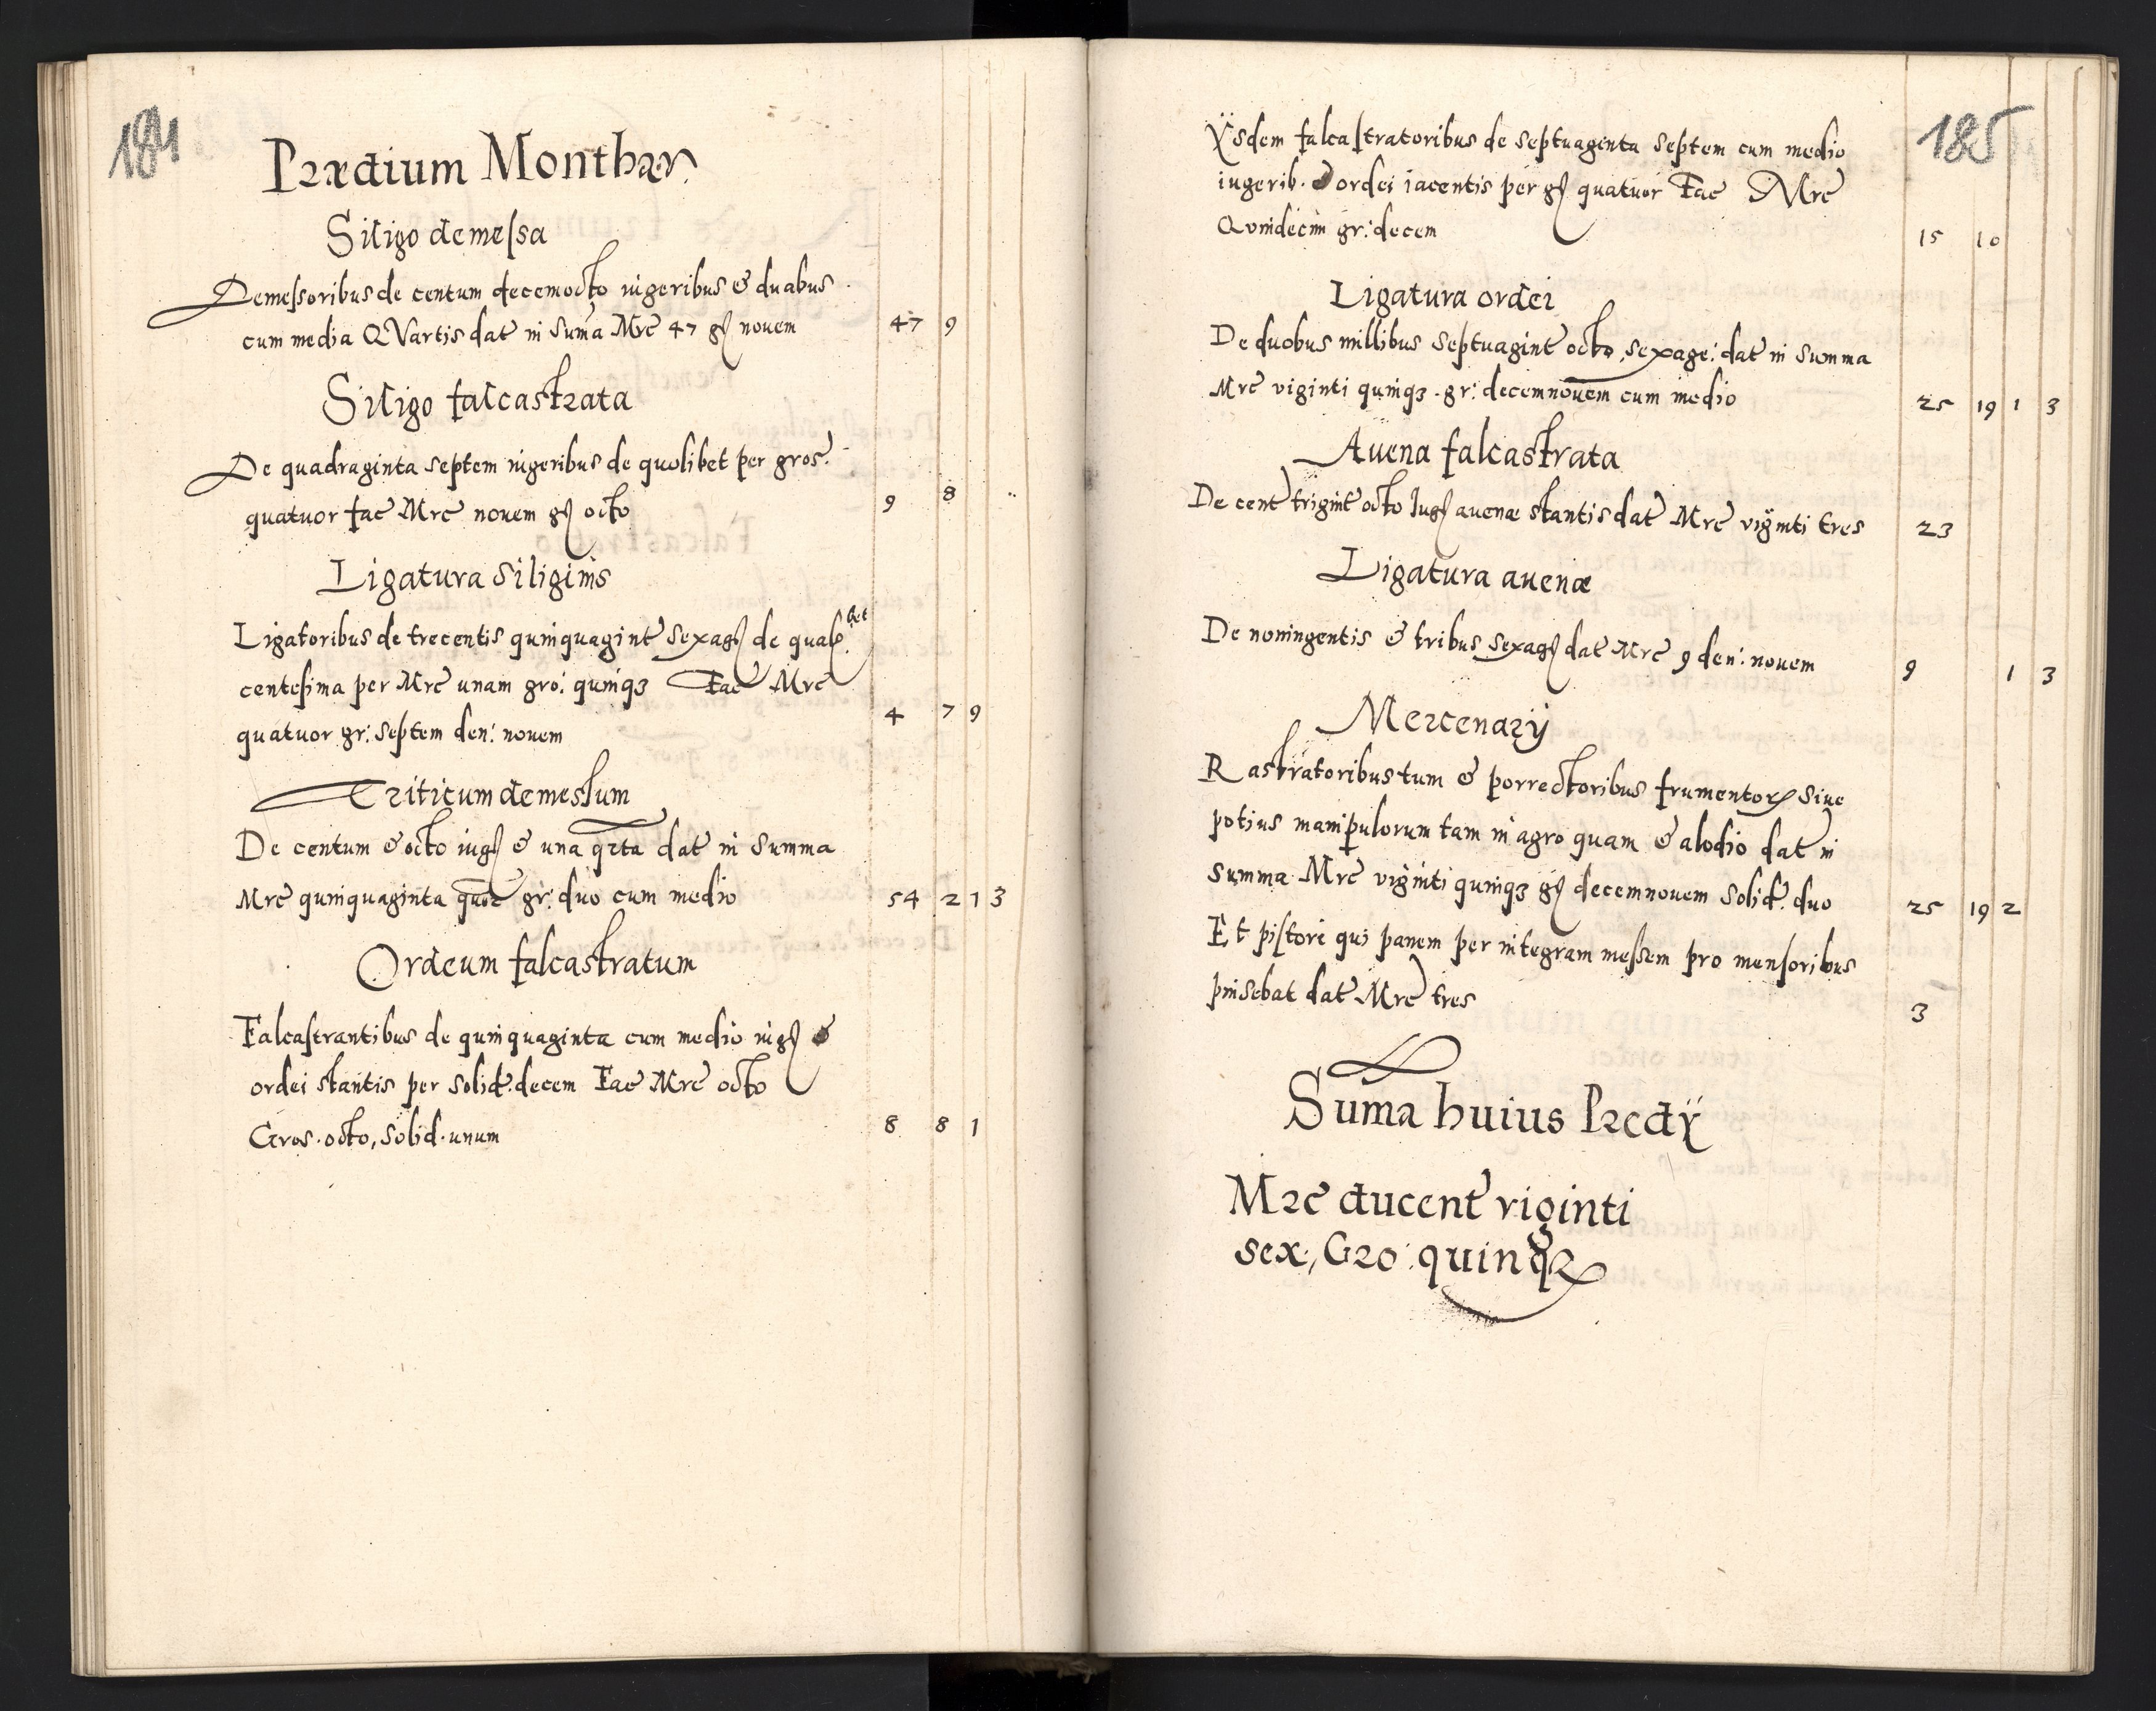 184
Prædium Monthaw
Siligo demeſsa
Demeſsoribus de centum decemocto iugeribus & duabus
cum media QVartis dat in Suma Mrc 47 gſ nouem 47 9
Siligo falcastrata
De quadraginta septem iugeribus de quolibet per gros:
quatuor fac Mrc nouem gſ octo 9 8
Ligatura Siliginis
Ligatoribus de trecentis quinquagint Sexagſ de qualibet
centeſima per Mrc unam gro: quinqз Fac Mrc
quatuor gr: Septem den: nouem 4 7 9
Triticum demestum
De centum & octo iugſ & una qrta dat in Summa
Mrc quinquaginta quor gr: duo cum medio 54 2 1 3
Ordeum falcastratum
Falcaſtrantibus de quinquaginta cum medio iugſ
ordei stantis per Solid. decem Fac Mrc octo
Gros. octo, Solid. unum 8 8 1
185
Ÿsdem falcaſtratoribus de Septuaginta Septem cum medio
iugerib. ordei iacentis per gſ quatuor Fac Mrc
Quindecim gr: decem 15 10
Ligatura ordei
De duobus millibus Septuagint octo, sexage: dat in Summa
Mrc viginti quinqз. gr: decemnouem cum medio 25 19 1 3
Auena falcastrata
De cent trigint octo Jugſ auenæ stantis dat Mrc viginti tres 23
Ligatura auenæ
De noningentis & tribus Sexagſ dat Mrc 9 den: nouem 9 1 3
Mercenarÿ
Rastratoribus tum & porrectoribus frumentorꝝ Siue
potius manipulorum tam in agro quam & alodio dat in
Summa Mrc viginti quinqз gſ decemnouem Solid. duo 25 19 2
Et piſtori qui panem per integram meſsem pro menſoribus
pinsebat dat Mrc tres 3
Suma huius Predÿ
Mrc ducent viginti
sex, Gro: quinqз